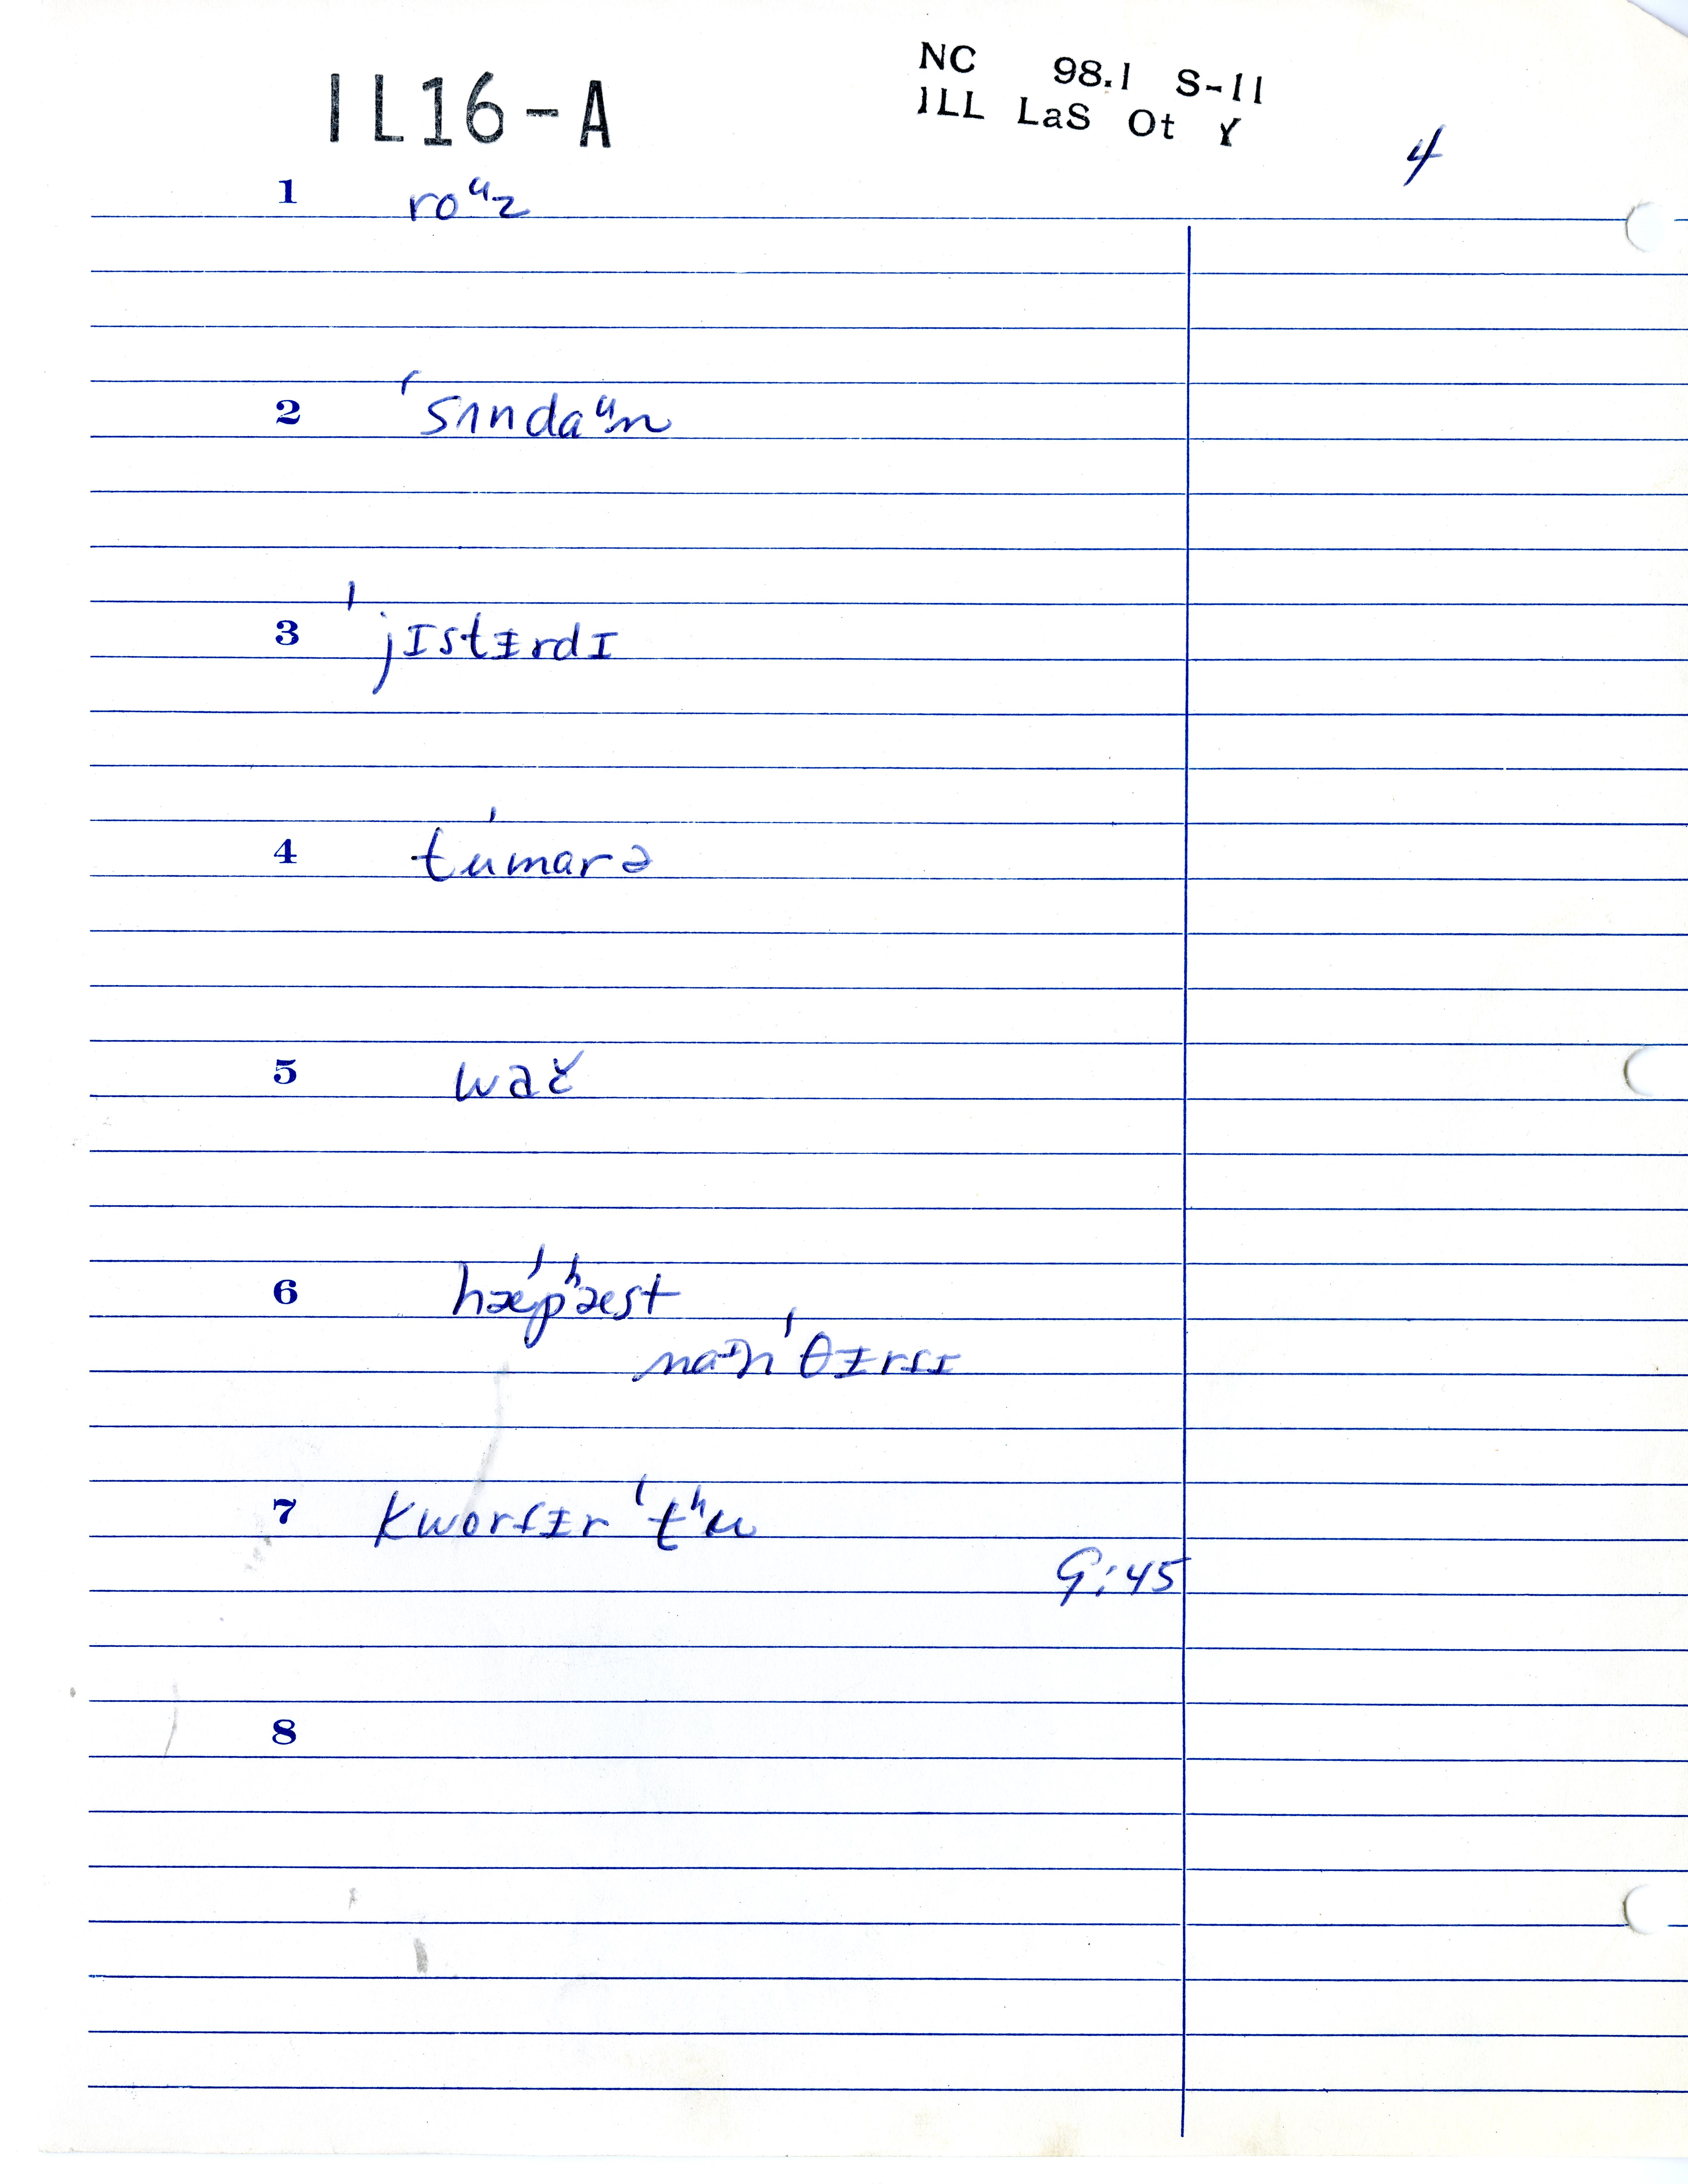 IL16-A
NC 98.1 S-11
ILL LaS Ot Y
4
1 roᵘz
2 ˈsʌndaᵘn
3 ˈjɪstᵻrdɪ
4 tuˈmarə
5 wač
6 hæˈpʰæst
naᶦnˈθᵻrtɪ
7 kwortᵻr ˈtʰu
9:45
8